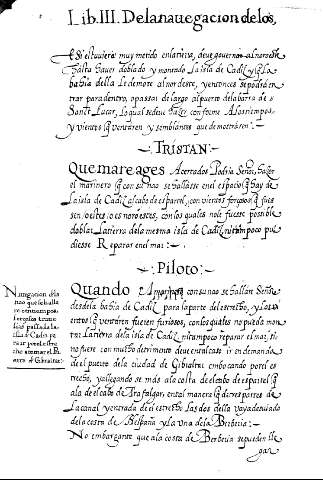 Lib. III. De la nauegacion de los,
Si estuuiere muy metido en la tierra, deue gouernar al noroeste
hasta hauer doblado y montado La isla de Cadiz y q̃ La
bahia della le demore al nordeste, y entonces se podrá en
trar para dentro, o passar de largo al puerto de la barra de s
Sant Lucar, Lo qual se deue hazer conforme A los tiempos
y vientos q̃ ventaren y semblantes que demostraren.
TRISTAN.
Que mareages Acertados Podria Señor, hazer
el marinero q̃ con su nao se hallasse en el espacio q̃ hay de
La isla de Cadiz al cabo de espartel, con vientos forçosos q̃ fues
sen oestes o es noroestes, con los quales no le fuesse possible
doblar La tierra de la mesma isla de Cadiz ni tampoco pu
diesse Reparar en el mar:
Piloto:
Quando Los marineros con su nao se hallan Señor
desde la bahia de Cadiz para la parte del estrecho, y Los vi
entos q̃ ventaren fueren furiosos, con los quales no pueda mon
tar La tierra de la isla de Cadiz ni tampoco reparar el mar, si
no fuere con mucho detrimento deue en tal caso ir en demanda
de el puerto de la ciudad de Gibraltar embocando por el es
trecho, y allegandose más a la costa de el cabo de espartel q̃
a la de el cabo de Trafalgar, en tal manera q̃ de tres partes de
La canal y entrada de el estrecho Las dos della vaya desuiado
de la costa de Hespaña y La vna de la Berberia:
No embargante que a la costa de Berberia se pueden lle
gar
Nauegacion de la
nao que se halla
re con tiempos
forçosos traue
sias passada la
isla de Cadiz pa
ra ir por el estre
cho a tomar el Pu
erto de Gibraltar: